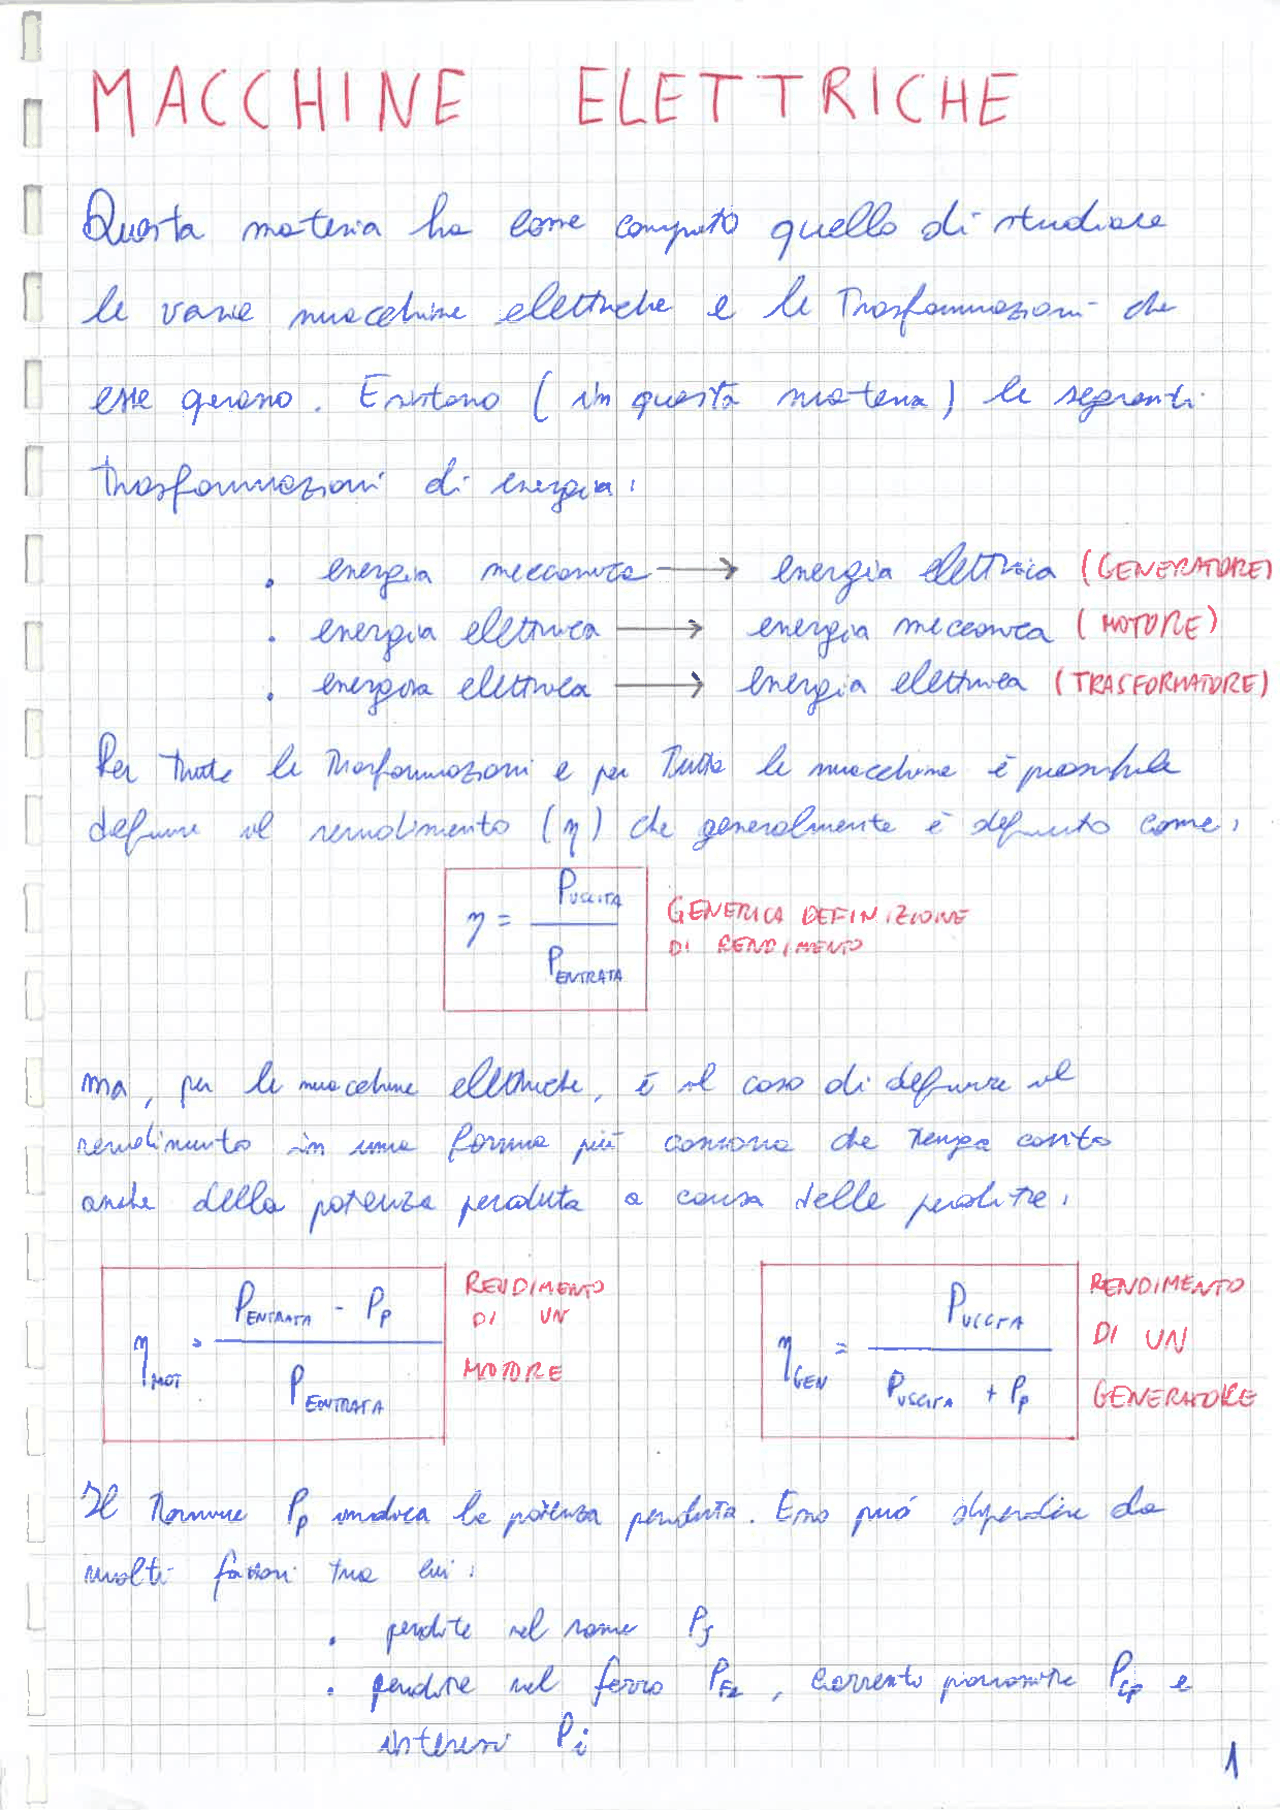 MACCHINE ELETTRICHE
Questa materia ha come compito quello di studiare
le varie macchine elettriche e le trasformazioni che
esse generano. Esistono (in questa materia) le seguenti
trasformazioni di energia:
• energia meccanica → energia elettrica (GENERATORE)
• energia elettrica → energia meccanica (MOTORE)
• energia elettrica → energia elettrica (TRASFORMATORE)
Per tutte le trasformazioni e per tutte le macchine è possibile
definire il rendimento (η) che generalmente è definito come:
η = P_USCITA / P_ENTRATA
GENERICA DEFINIZIONE
DI RENDIMENTO
ma, per le macchine elettriche, è il caso di definire il
rendimento in una forma più consona che tenga conto
anche della potenza perduta a causa delle perdite:
η_MOT = (P_ENTRATA - P_p) / P_ENTRATA
RENDIMENTO
DI UN
MOTORE
η_GEN = P_USCITA / (P_USCITA + P_p)
RENDIMENTO
DI UN
GENERATORE
Il termine P_p indica la potenza perduta. Esso può dipendere da
molti fattori tra cui:
• perdite nel rame P_J
• perdite nel ferro P_Fe, correnti parassite P_cp e
isteresi P_i
1